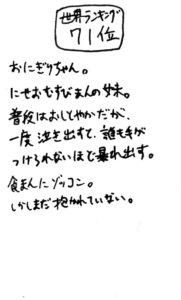 世界ランキング
71位
おにぎりちゃん。
にせおむすびまんの妹。
普段はおしとやかだが、
一度泣き出すと、誰も手が
つけられないほど暴れ出す。
食まんにゾッコン。
しかしまだ抱かれていない。